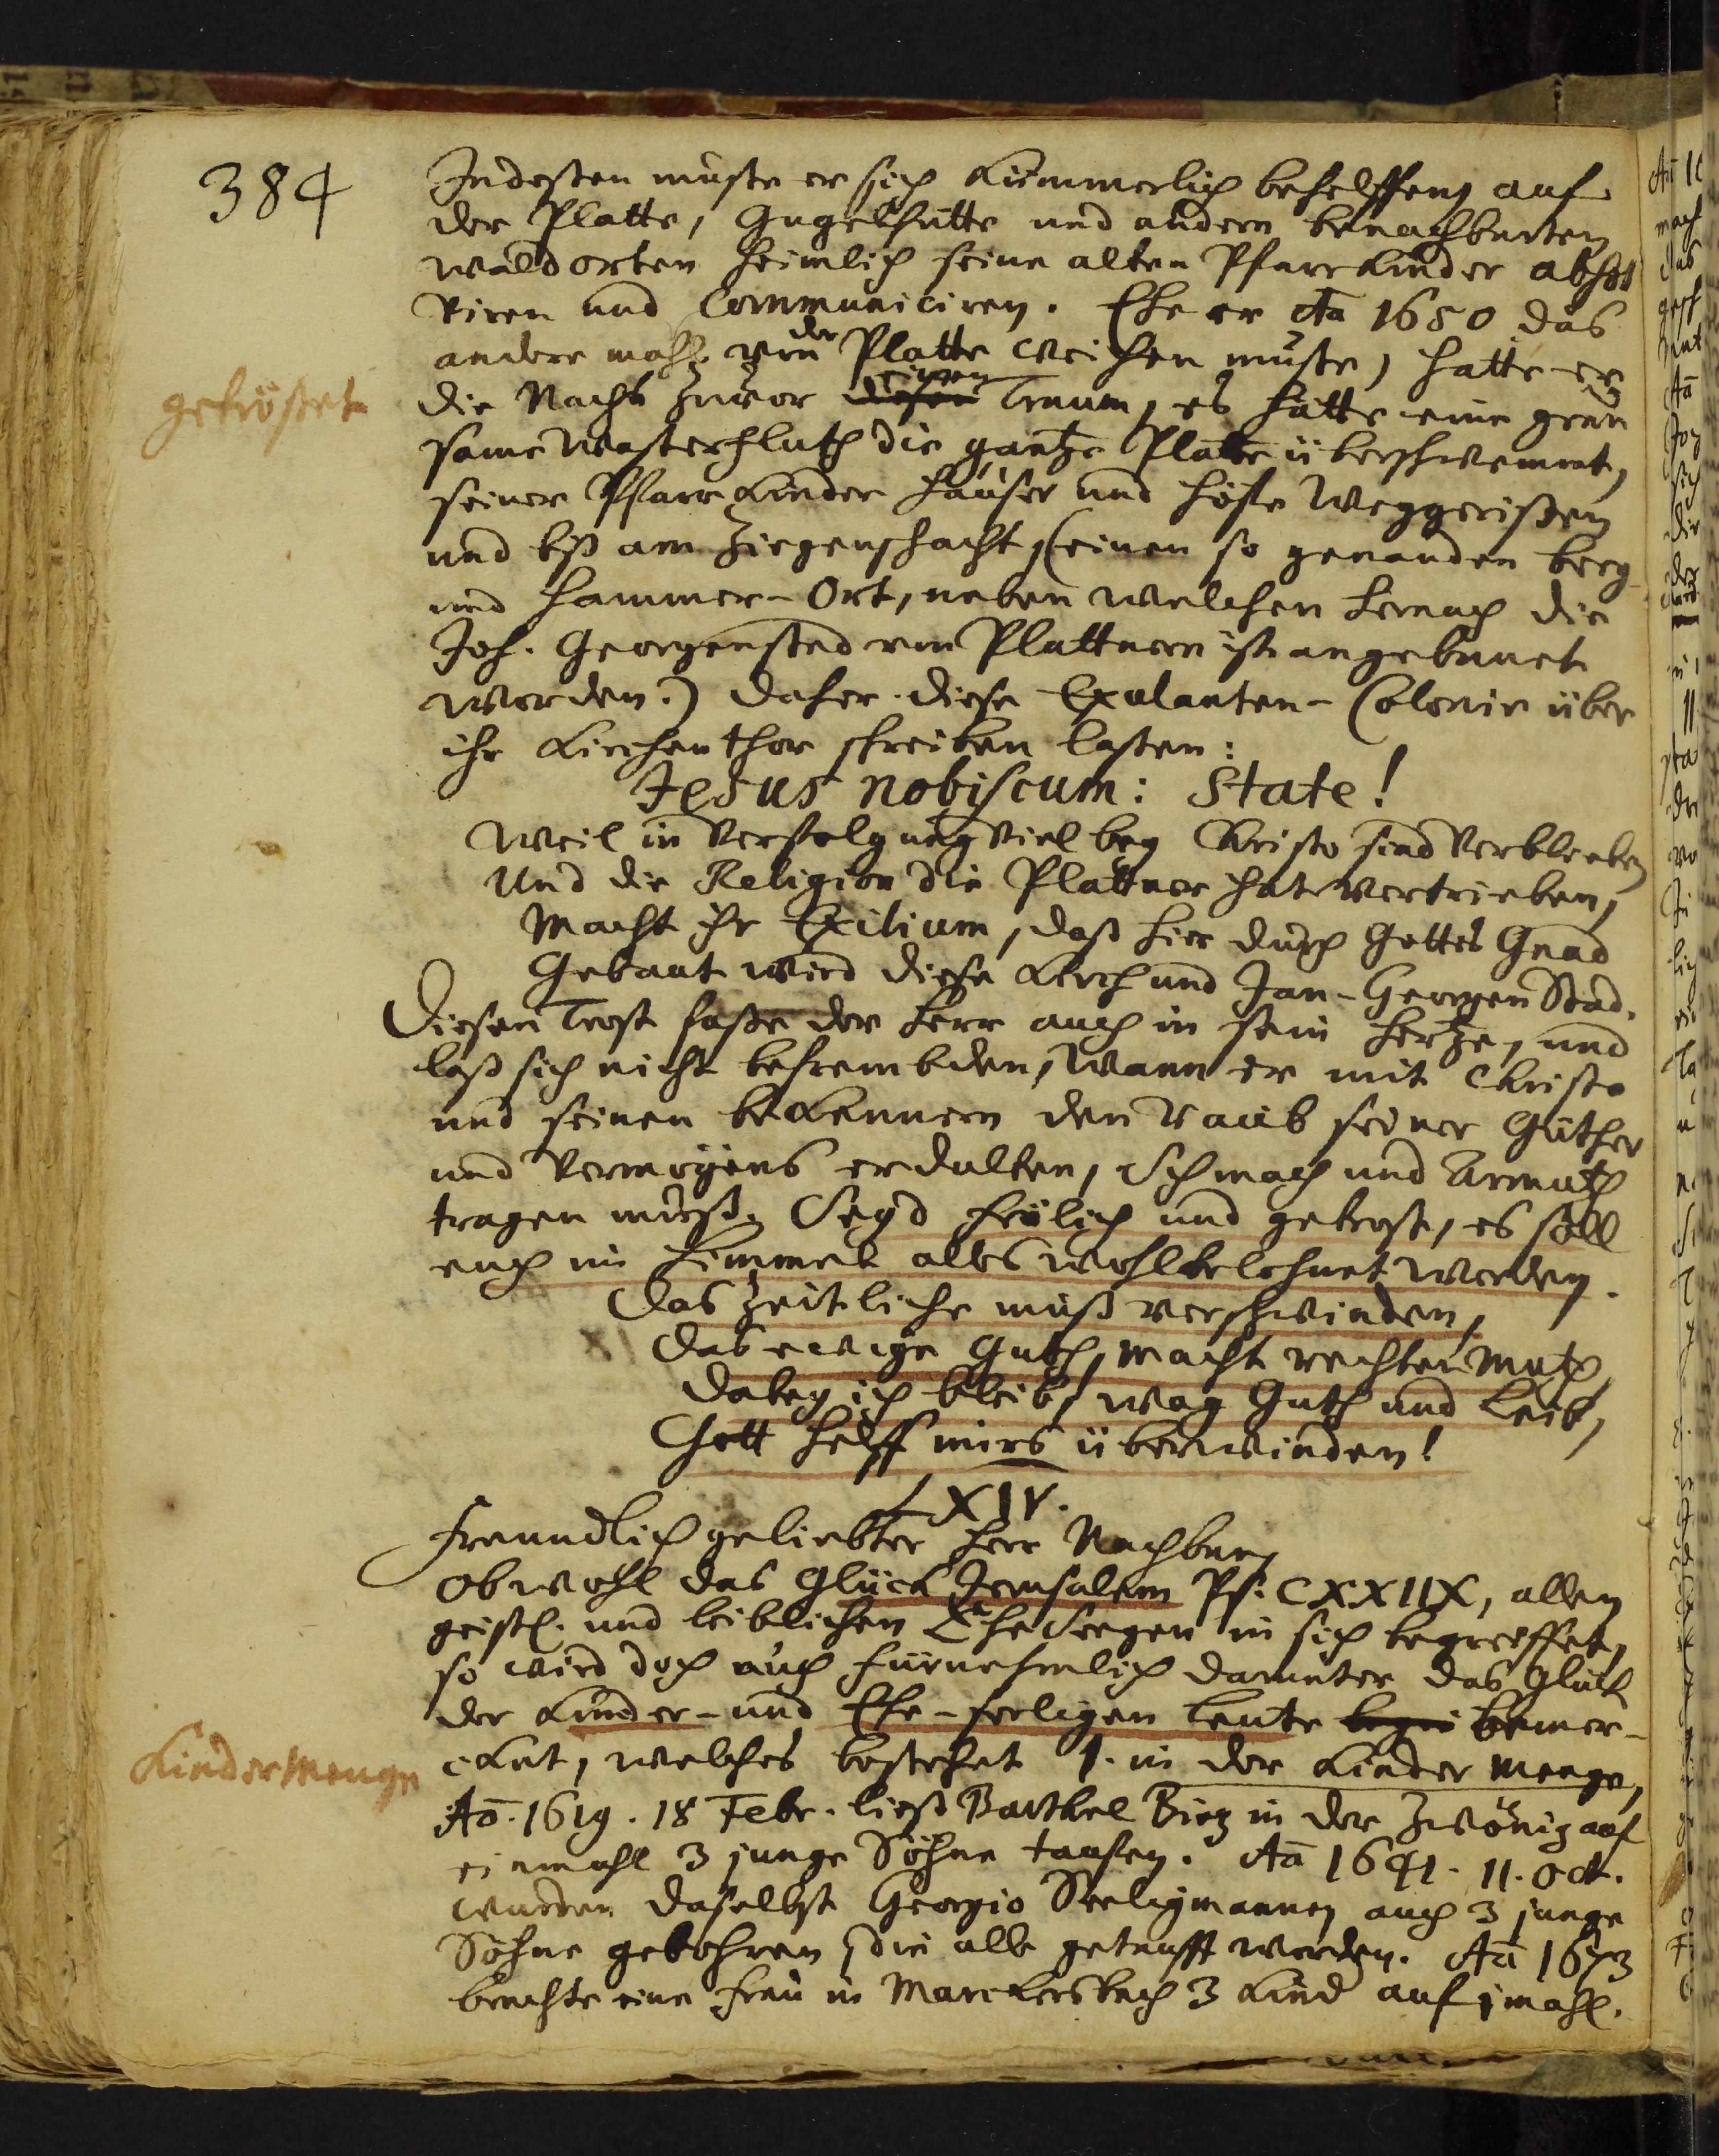 384
Indeßen muste er sich kümmerlich behelffen auf
der Platte, Gugelhütte und andern benachbarten
waldorten heimlich seine alten Pfarrkinder absol
viren und Communiciren. Ehe er Aō 1650 das
andere mahl von der Platte weichen muste, hatte er
getröstet
die Nacht zuvor einen Traum, es hätte eine grau
same Waßerfluth die gantze Platte überschwemmt,
seiner Pfarrkinder häuser und höfe weggerißen
und biß am Ziegenschacht, (einen so genanden berg-
und Hammer-Ort, neben welchen hernach die
Joh. Georgenstad von Plattnern ist angebauet
worden.) daher diese Exulanten-Colonie über
ihr Kirchenthor schreiben laßen:
Jesus nobiscum: State!
Weil in Verfolgung viel bey Christo sind verblieben
Und die Religion die Plattner hat vertrieben,
Macht ihr Exilium, daß hier durch Gottes Gnad
Gebaut wird diese Kirch und Jan-Georgen Stad.
Diesen Trost faße der Herr auch in sein Hertze, und
laß sich nicht befrembden, wann er mit Christo
und seinen bekennern den Raub seiner Güther
und Vermögens erdulten, Schmach und Armuth
tragen muß. Seyd frölich und getrost, es soll
euch im Himmel alles wohl belohnet werden.
Das Zeitliche muß verschwinden,
Das ewige Guth, macht rechten Muth
dabey ich bleib, wag Guth und Leib,
Gott helff mirs überwinden!
LXIV.
Freundlich geliebter Herr Nachbar,
Obwohl das Glück Jerusalem Ps. CXXIIX, allen
geistl. und leiblichen Ehe Seegen in sich begreiffet,
so wird doch auch fürnehmlich darunter das Glück
der Kinder- und Ehe-seeligen Leute bemer-
Kinder Menge
cket, welches bestehet 1. in der Kinder Menge,
Aō. 1619. 18 Febr. ließ Barthel Bietz in der Zwönitz auf
einmahl 3 junge Söhne tauffen. Aō 1641. 11. Oct.
wurden daselbst Georgio Seeligmannen auch 3 junge
Söhne gebohren, die alle getaufft worden. Aō 1673
brachte eine Frau in Marckersbach 3 Kind auf 1 mahl.